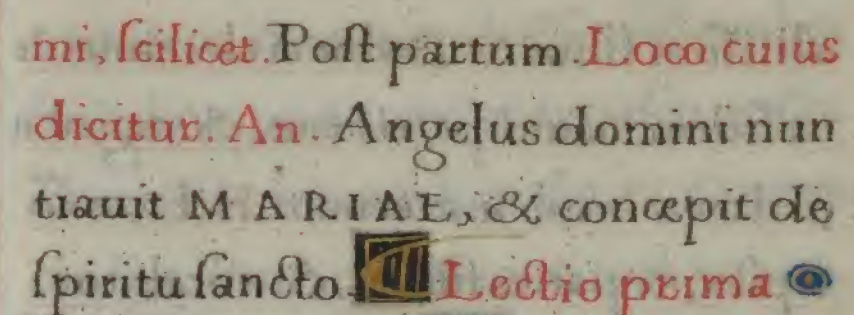 mi, ſcilicet. Poſt partum. Loco cuius
dicitur. An. Angelus domini nun
tiauit MARIAE, & concepit de
ſpiritu ſancto. Lectio prima